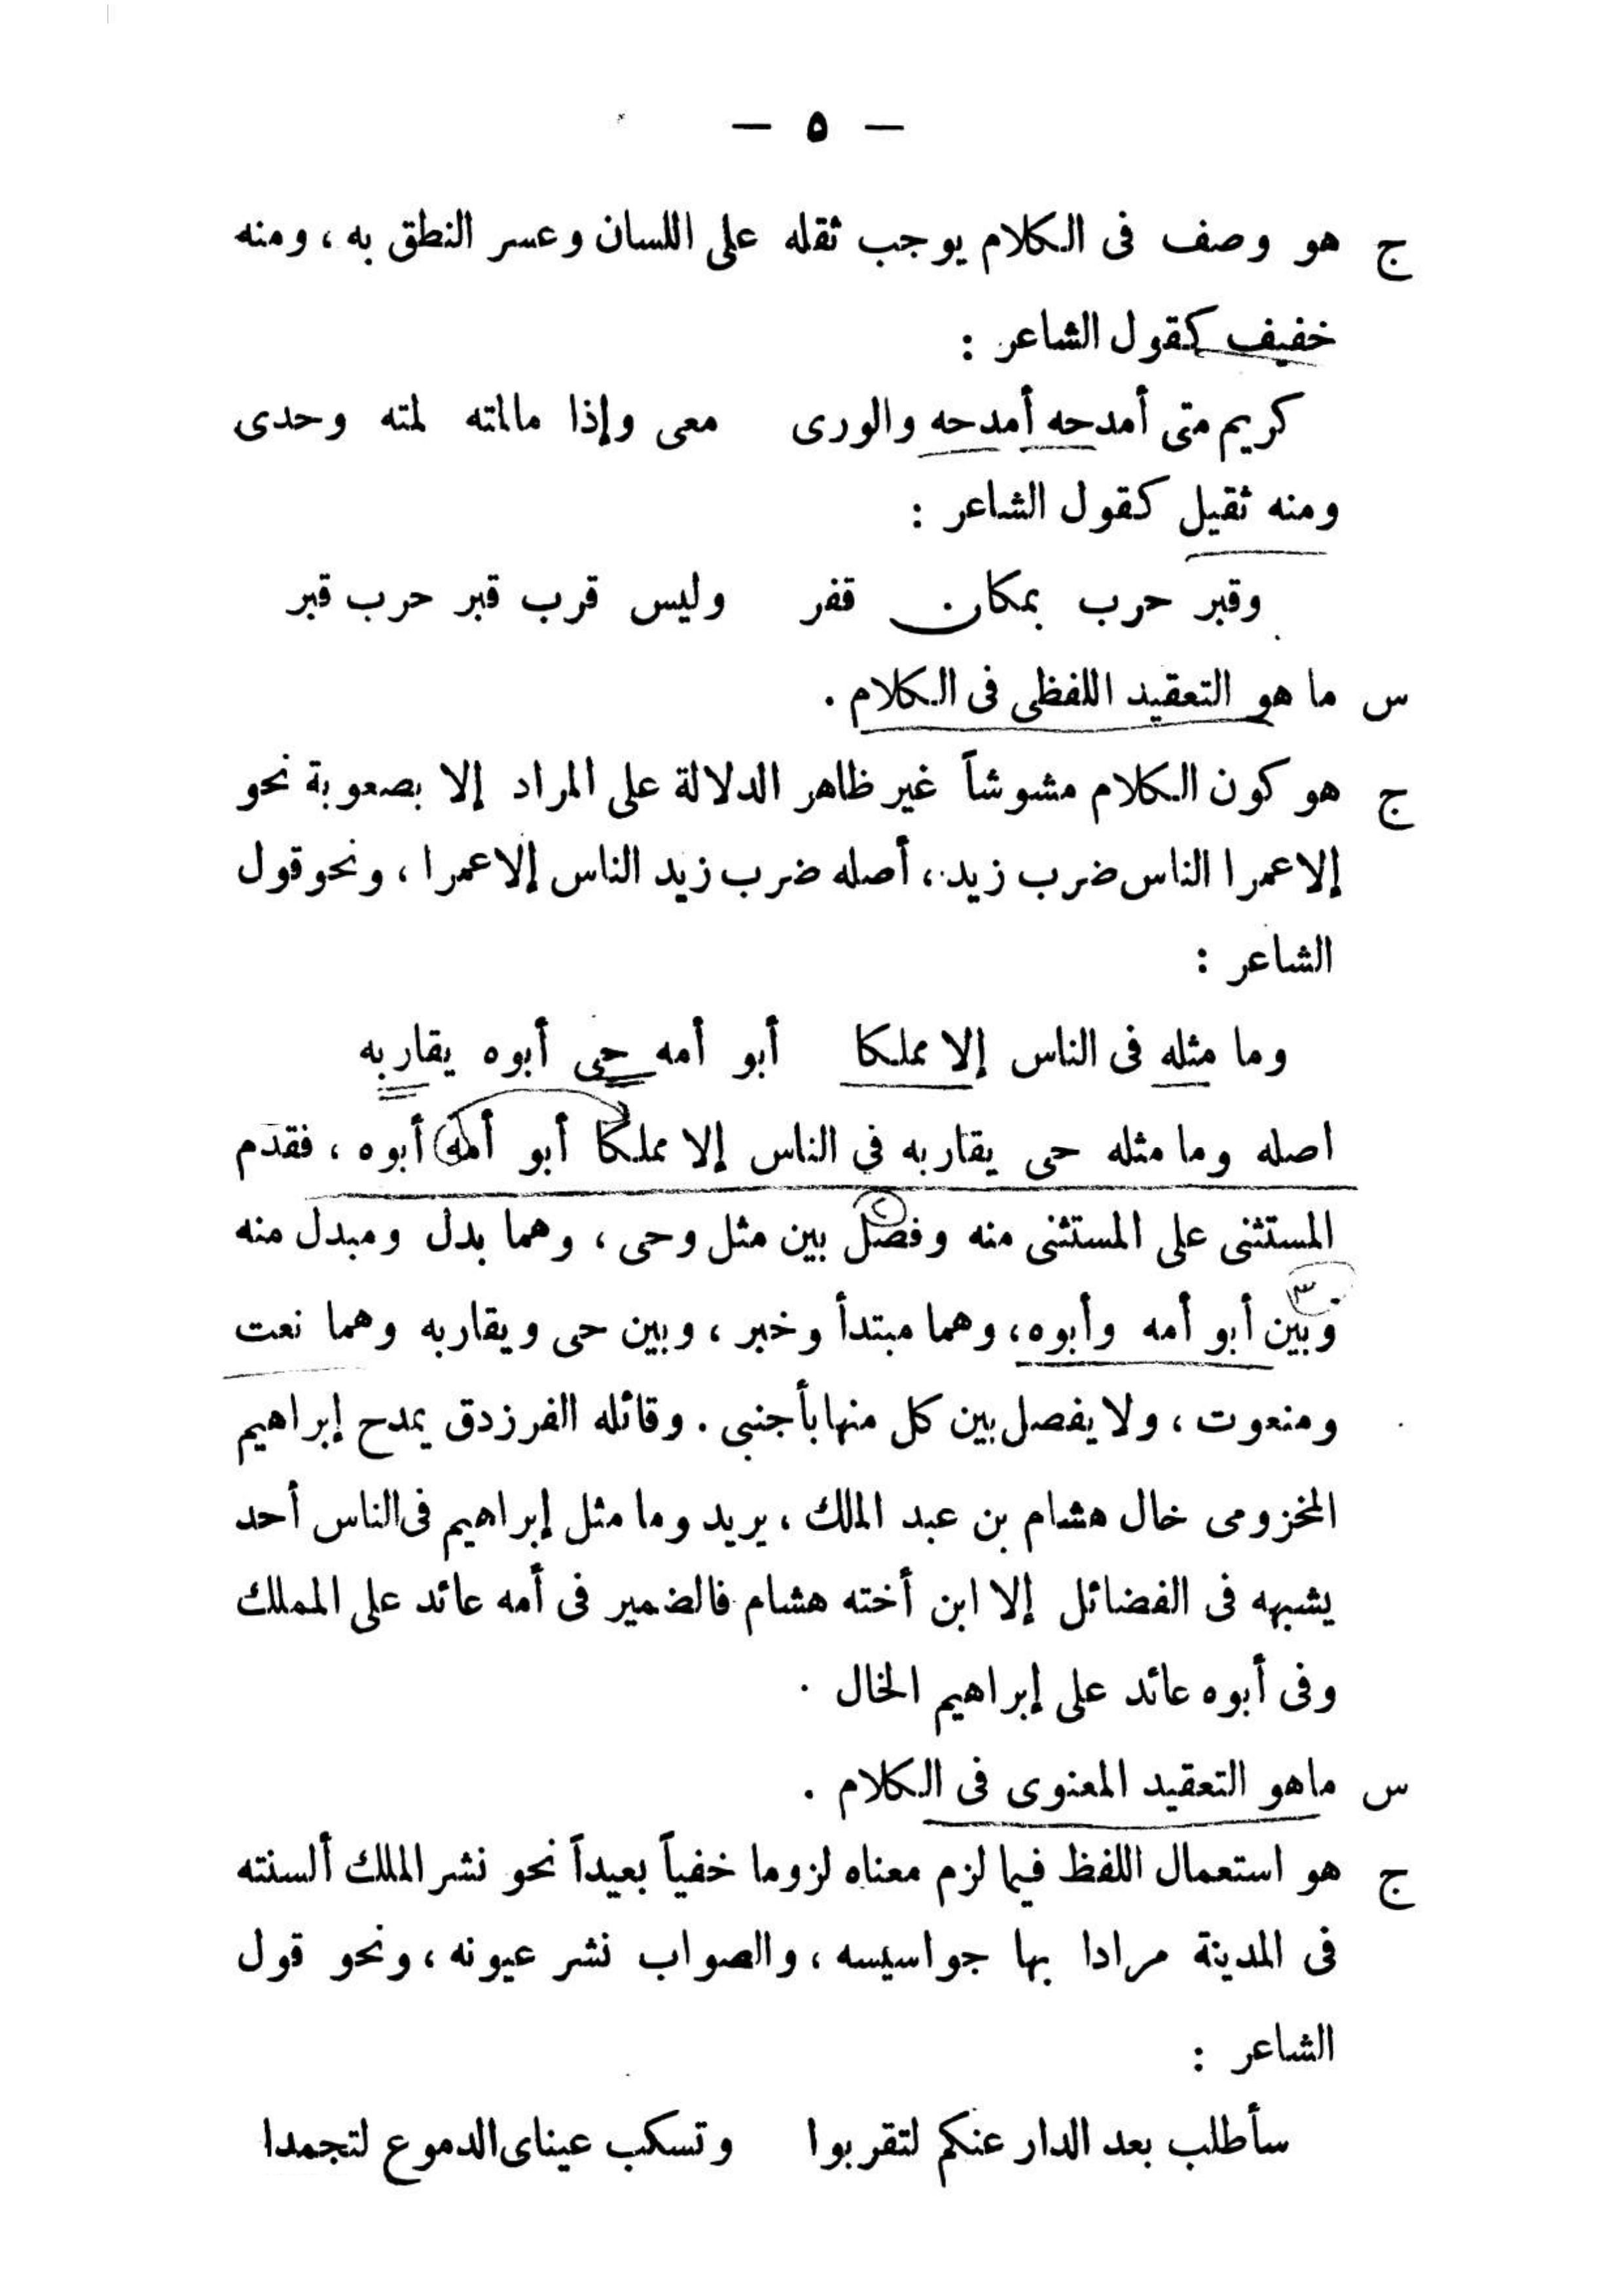 — ٥ —
ج هو وصف فى الكلام يوجب ثقله على اللسان وعسر النطق به ، ومنه
خفيف كقول الشاعر :
كريم متى أمدحه أمدحه والورى معى وإذا مالمته لمته وحدى
ومنه ثقيل كقول الشاعر :
وقبر حرب بمكان قفر وليس قرب قبر حرب قبر
س ما هو التعقيد اللفظى فى الكلام .
ج هو كون الكلام مشوشاً غير ظاهر الدلالة على المراد إلا بصعوبة نحو
إلا عمرا الناس ضرب زيد ، أصله ضرب زيد الناس إلا عمرا ، ونحو قول
الشاعر :
وما مثله فى الناس إلا مملكا أبو أمه حى أبوه يقاربه
اصله وما مثله حى يقاربه في الناس إلا مملكا أبو أمه أبوه ، فقدم
المستثنى على المستثنى منه وفصل بين مثل وحى ، وهما بدل ومبدل منه
٣
وبين أبو أمه وأبوه ، وهما مبتدأ وخبر ، وبين حى ويقاربه وهما نعت
ومنعوت ، ولا يفصل بين كل منها بأجنبى . وقائله الفرزدق يمدح إبراهيم
المخزومى خال هشام بن عبد الملك ، يريد وما مثل إبراهيم فى الناس أحد
يشبهه فى الفضائل إلا ابن أخته هشام فالضمير فى أمه عائد على المملك
وفى أبوه عائد على إبراهيم الخال .
س ماهو التعقيد المعنوى فى الكلام .
ج هو استعمال اللفظ فيما لزم معناه لزوما خفياً بعيداً نحو نشر الملك ألسنته
فى المدينة مرادا بها جواسيسه ، والصواب نشر عيونه ، ونحو قول
الشاعر :
سأطلب بعد الدار عنكم لتقربوا وتسكب عيناى الدموع لتجمدا